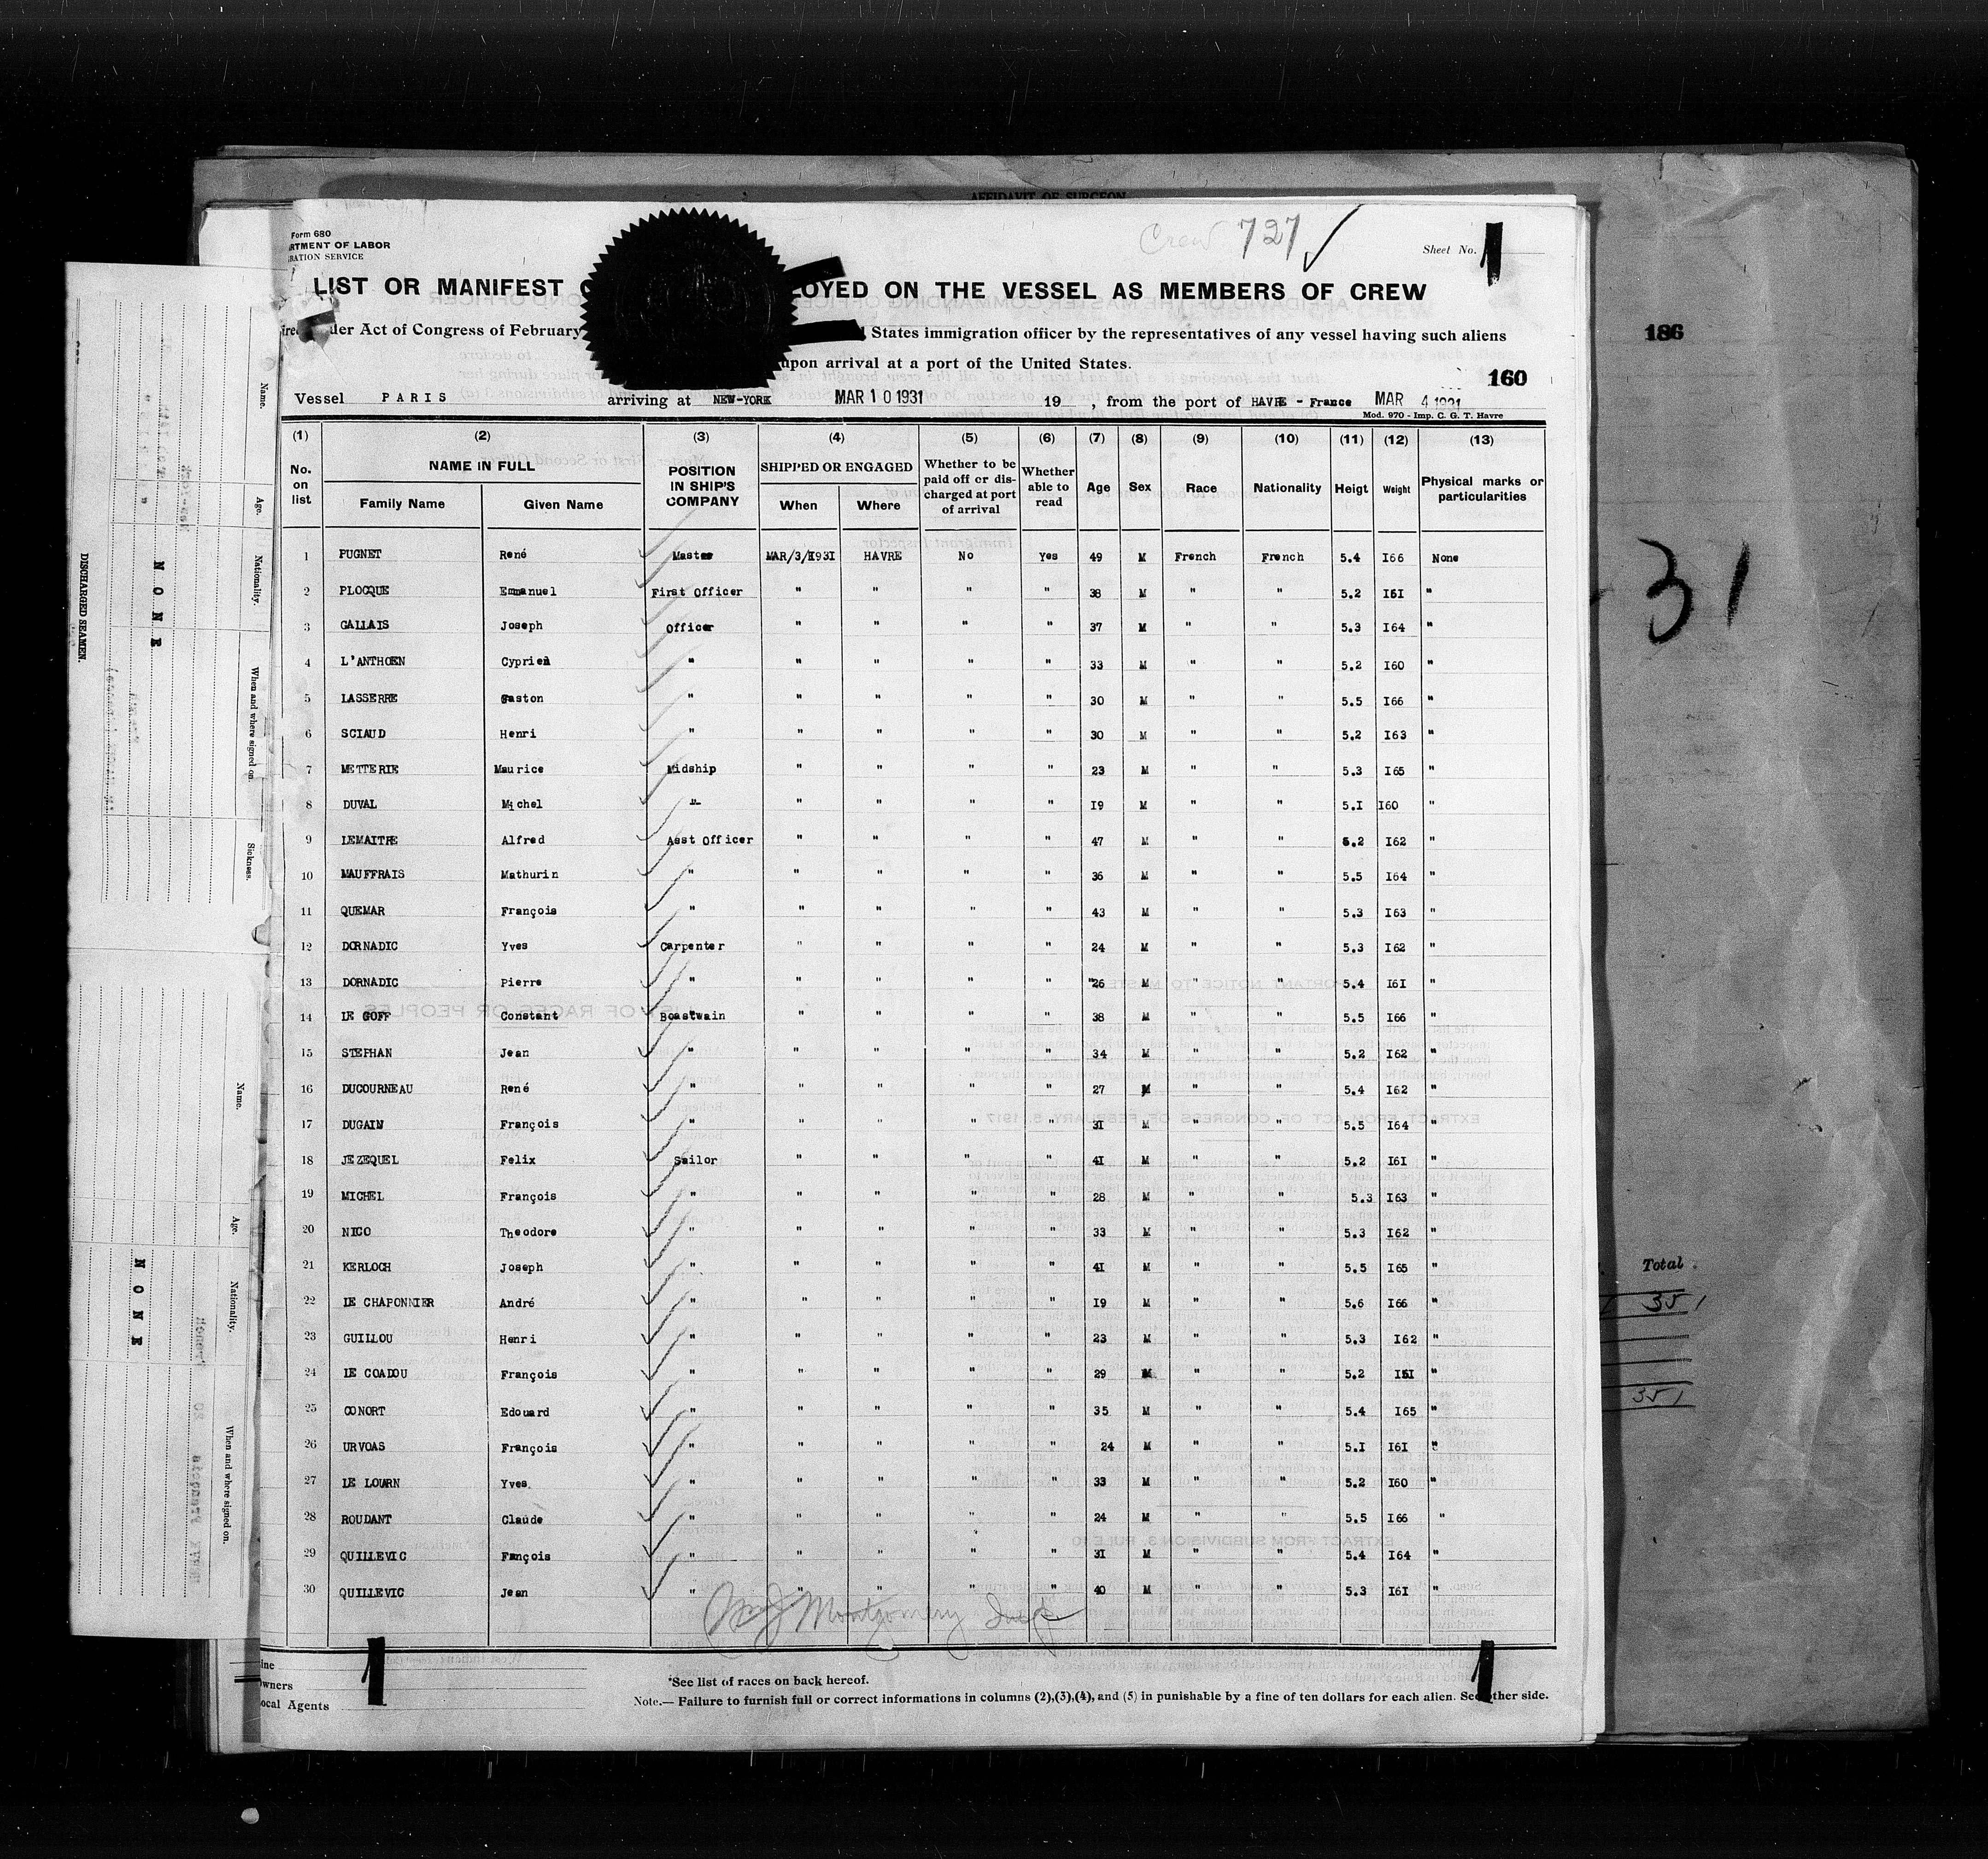 AFFIDAVIT OF SURGEON
Form 680
RTMENT OF LABOR
RATION SERVICE
Crew 727
Sheet No. 1
LIST OR MANIFEST O OYED ON THE VESSEL AS MEMBERS OF CREW
der Act of Congress of February States immigration officer by the representatives of any vessel having such aliens
upon arrival at a port of the United States.
186
160
Vessel PARIS arriving at NEW-YORK MAR 10 1931 19 , from the port of HAVRE - France MAR 4 1931
Mod. 970 - Imp. C. G. T. Havre
(1) (2) (3) (4) (5) (6) (7) (8) (9) (10) (11) (12) (13)
No. on list NAME IN FULL Family Name Given Name POSITION IN SHIP'S COMPANY SHIPPED OR ENGAGED When Where Whether to be paid off or discharged at port of arrival Whether able to read Age Sex Race Nationality Heigt Weight Physical marks or particularities
1 PUGNET René Master MAR/3/1931 HAVRE No Yes 49 M French French 5.4 I66 None
2 PLOCQUE Emmanuel First Officer " " " " 38 M " " 5.2 I61 "
3 GALLAIS Joseph Officer " " " " 37 M " " 5.3 I64 "
4 L'ANTHOEN Cyprien " " " " " 33 M " " 5.2 I60 "
5 LASSERRE Gaston " " " " 30 M " " 5.5 I66 "
6 SCIAUD Henri " " " " " 30 M " " 5.2 I63 "
7 METTERIE Maurice Midship " " " " 23 M " " 5.3 I65 "
8 DUVAL Michel " " " " " I9 M " " 5.I I60 "
9 LEMAITRE Alfred Asst Officer " " " " 47 M " " 5.2 I62 "
10 MAUFFRAIS Mathurin " " " " " 36 M " " 5.5 I64 "
11 QUEMAR François " " " " " 43 M " " 5.3 I63 "
12 DORNADIC Yves Carpenter " " " " 24 M " " 5.3 I62 "
13 DORNADIC Pierre " " " " " 26 M " " 5.4 I6I "
14 LE GOFF Constant Boastwain " " " " 38 M " " 5.5 I66 "
15 STEPHAN Jean " " " " " 34 M " " 5.2 I62 "
16 DUCOURNEAU René " " " " " 27 M " " 5.4 I62 "
17 DUGAIN François " " " " " 3I M " " 5.5 I64 "
18 JEZEQUEL Felix Sailor " " " " 4I M " " 5.2 I6I "
19 MICHEL François " " " " " 28 M " " 5.3 I63 "
20 NICO Theodore " " " " " 33 M " " 5.3 I62 "
21 KERLOCH Joseph " " " " " 4I M " " 5.5 I65 "
22 LE CHAPONNIER André " " " " " I9 M " " 5.6 I66 "
23 GUILLOU Henri " " " " " 23 M " " 5.3 I62 "
24 LE COADOU François " " " " " 29 M " " 5.2 "
25 CONORT Edouard " " " " " 35 M " " 5.4 I65 "
26 URVOAS François " " " " " 24 M " " 5.I I6I "
27 LE LOURN Yves " " " " " 33 M " " 5.2 I60 "
28 ROUDANT Claude " " " " " 24 M " " 5.5 I66 "
29 QUILLEVIC Fançois " " " " " 3I M " " 5.4 I64 "
30 QUILLEVIC Jean " " " " " 40 M " " 5.3 I6I "
Montgomery Insp.
ine
wners
ocal Agents
*See list of races on back hereof.
Note.— Failure to furnish full or correct informations in columns (2),(3),(4), and (5) in punishable by a fine of ten dollars for each alien. See other side.
1
1
31
Total
351
351
DISCHARGED SEAMEN.
Name. Age. Nationality. When and where signed on. Sickness.
NONE
Name. Age. Nationality. When and where signed on.
NONE